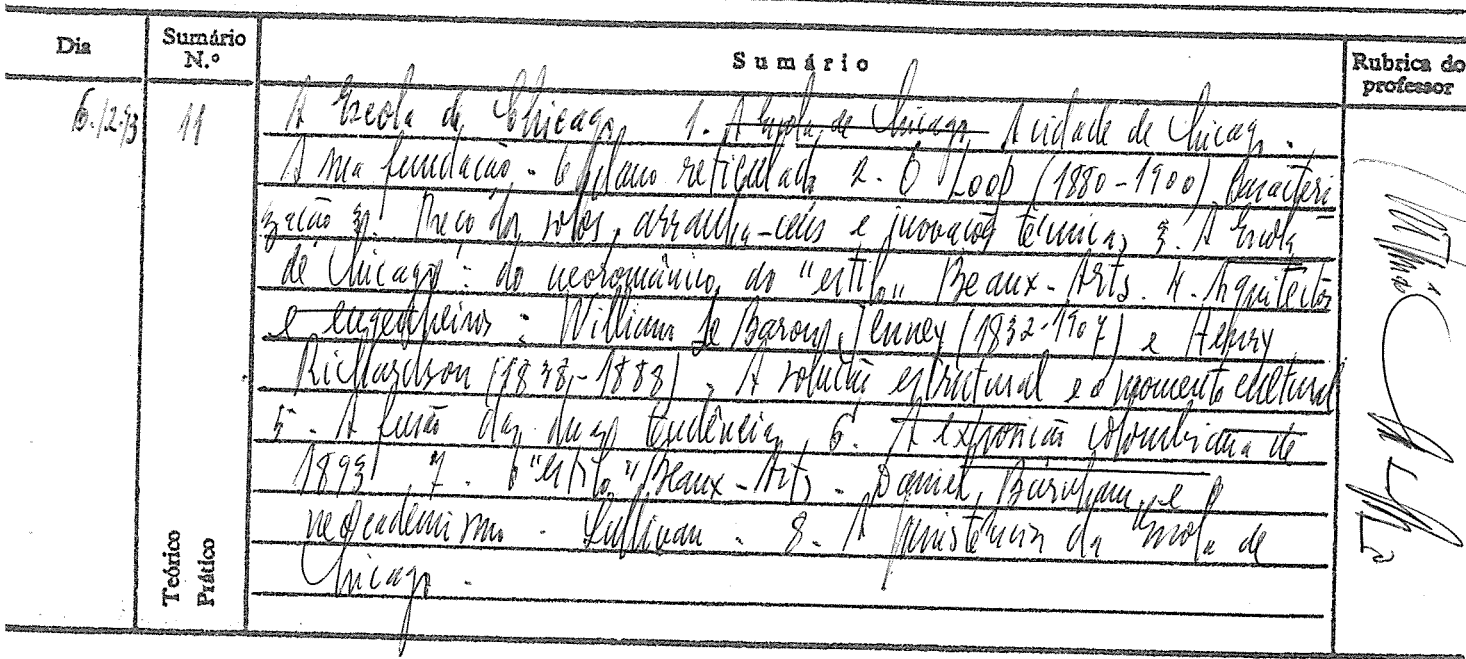 Dia
Sumário N.º
Sumário
Rubrica do professor
6.12.93
11
A Escola de Chicago 1. A Escola de Chicago A cidade de Chicago.
A sua fundação - O plano reticulado 2. O Loop (1880-1900) Caracteri
zação Preço dos solos, arranha-céus e inovações técnicas 3. A Escola
de Chicago: do neoromânico, do "estilo" Beaux-Arts. 4. Arquitectos
e engenheiros: William Le Baron Jenney (1832-1907) e Henry
Richardson (1838-1888). A solução estrutural e o momento cultural
5. A fusão das duas tendências, 6. A exposição colombiana de
1893 7. O "estilo" Beaux-Arts - Daniel Burnham e o
neoacademismo - Sullivan. 8. A persistência da Escola de
Chicago.
Teórico
Prático